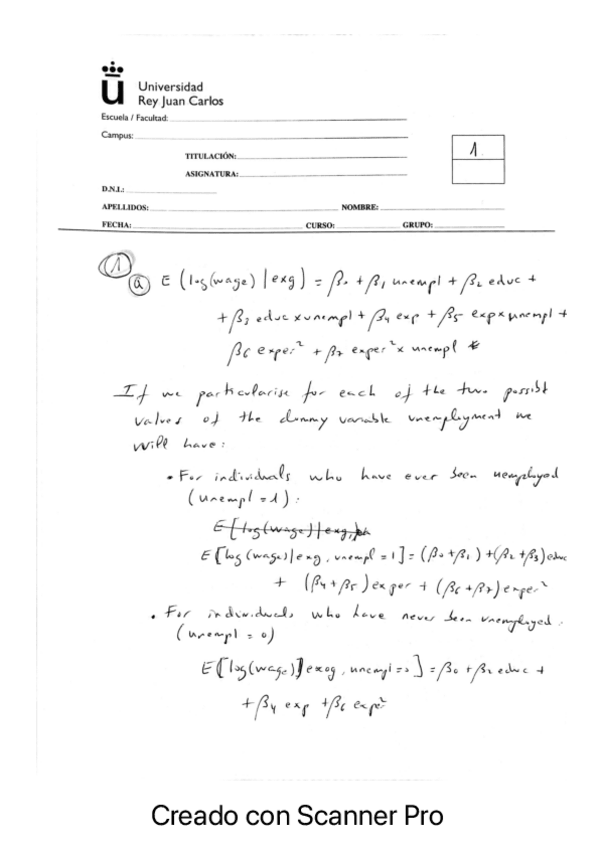 Universidad
Rey Juan Carlos
Escuela / Facultad:
Campus:
TITULACIÓN:
ASIGNATURA:
1
D.N.I.:
APELLIDOS: NOMBRE:
FECHA: CURSO: GRUPO:
1
a E (log(wage) | exg) = β0 + β1 unempl + β2 educ +
+ β3 educ x unempl + β4 exp + β5 exp x unempl +
β6 exper² + β7 exper² x unempl
If we particularise for each of the two possibl
values of the dummy variable unemployment we
will have:
• For individuals who have ever been uemployed
(unempl = 1):
E[log(wage)|exg,
E[log(wage)|exg, unempl = 1] = (β0 + β1) + (β2 + β3) educ
+ (β4 + β5) exper + (β6 + β7) exper²
• For individuals who have never been unemployed:
(unempl = 0)
E[log(wage)|exog, unempl = 0] = β0 + β2 educ +
+ β4 exp + β6 exper²
Creado con Scanner Pro